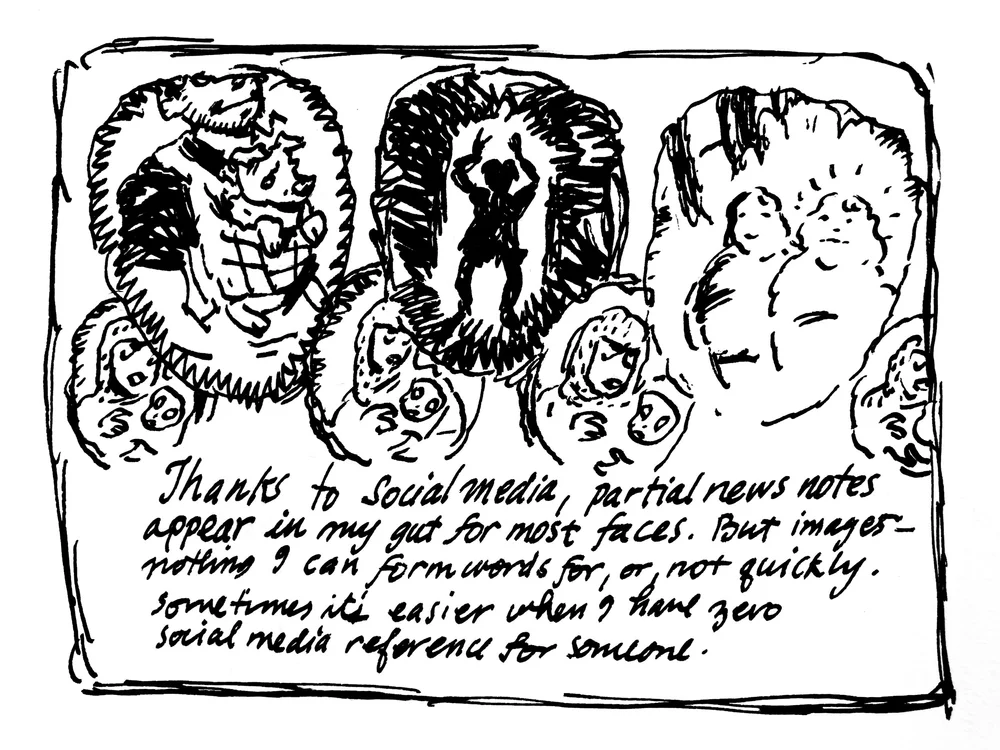 Thanks to Social media, partial news notes
appear in my gut for most faces. But images—
nothing I can form words for, or, not quickly.
sometimes it's easier when I have zero
social media reference for someone.